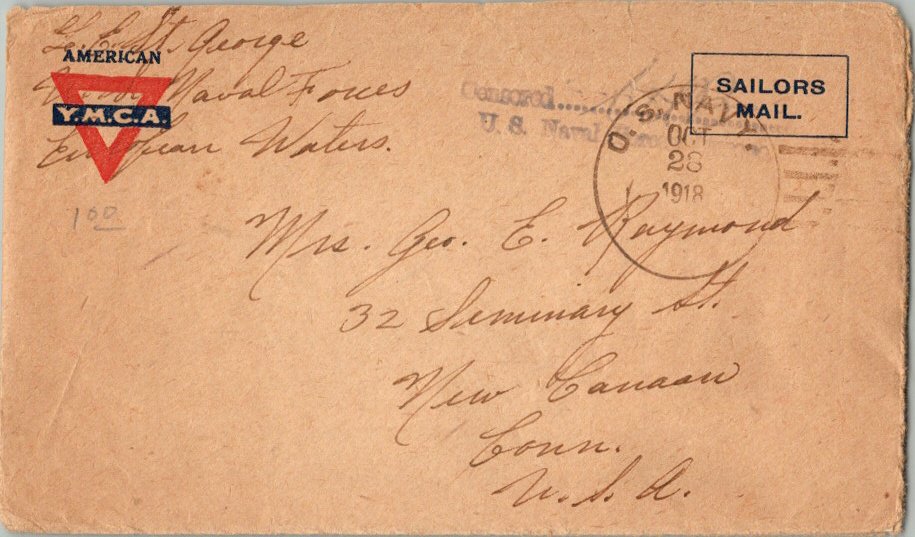 L. E. St. George
AMERICAN
Y.M.C.A.
Naval Forces
European Waters.
Censored
U. S. Naval
SAILORS
MAIL.
U. S. NAVY
OCT
28
1918
100
Mrs. Geo. E. Raymond
32 Seminary St.
New Canaan
Conn.
U. S. A.